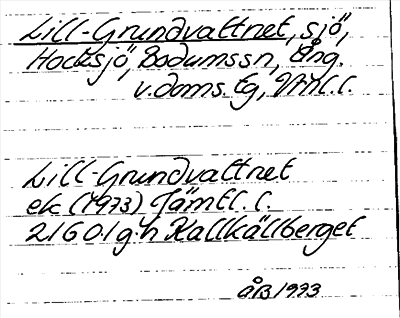 Lill-Grundvattnet, sjö,
Hocksjö, Bodumssn, Ång.
v.doms. Eg, Vnl. l.
Lill-Grundvattnet
ek (1973) Jämtl. l.
21G 0.1 g-h Kallkällberget
ÅB 1973